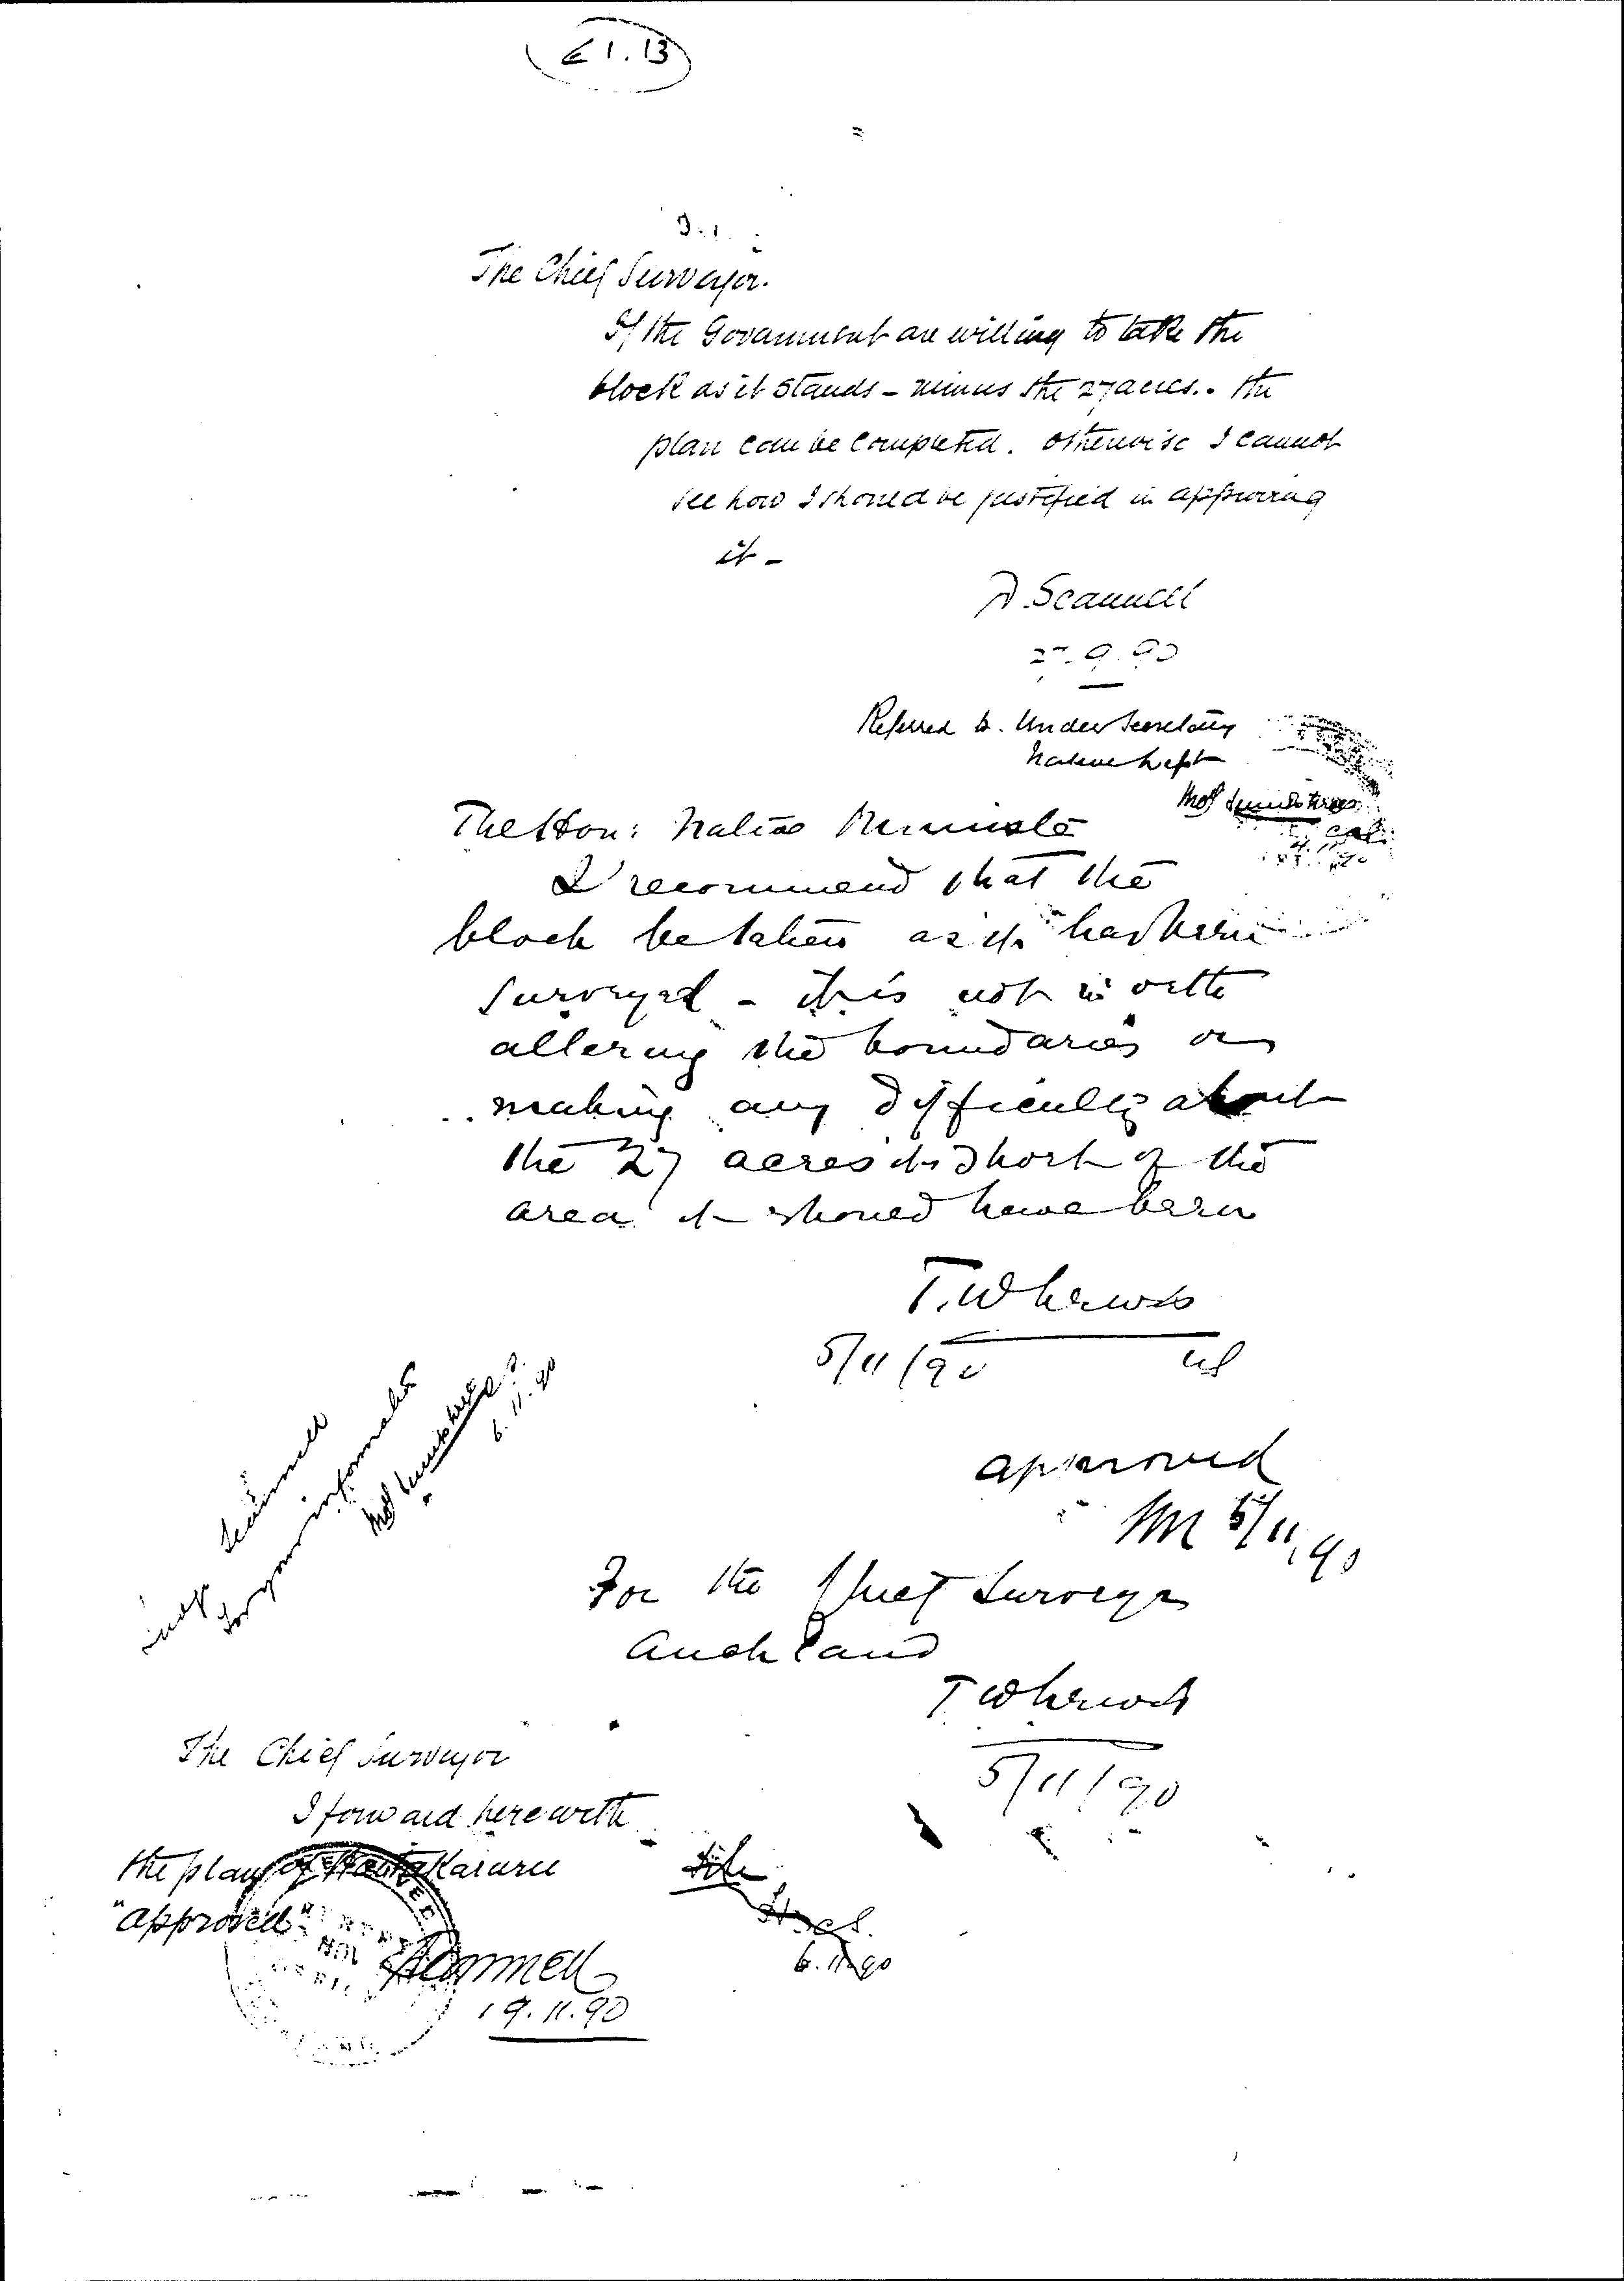 E1.13
The Chief Surveyor.
If the Government are willing to take the
block as it stands - minus the 27 acres. - the
plan can be completed. Otherwise I cannot
see how I should be justified in approving
it -
D. Scannell
27.9.90
Referred to Under Secretary
Native Dept
The Hon: Native Minister
I recommend that the
block be taken as it has been
surveyed - it is not worth
altering the boundaries or
making any difficulty about
the 27 acres it is short of the
area it should have been
T. W Lewis
5/11/90 US
approved
5/11/90
For the Chief Surveyor
Auckland
T W Lewis
5/11/90
Judge Scannell
for your information
6.11.90
The Chief Surveyor
I forward herewith
the plan of Hautakaruru
"approved"
Scannell
19.11.90
file
6.11.90